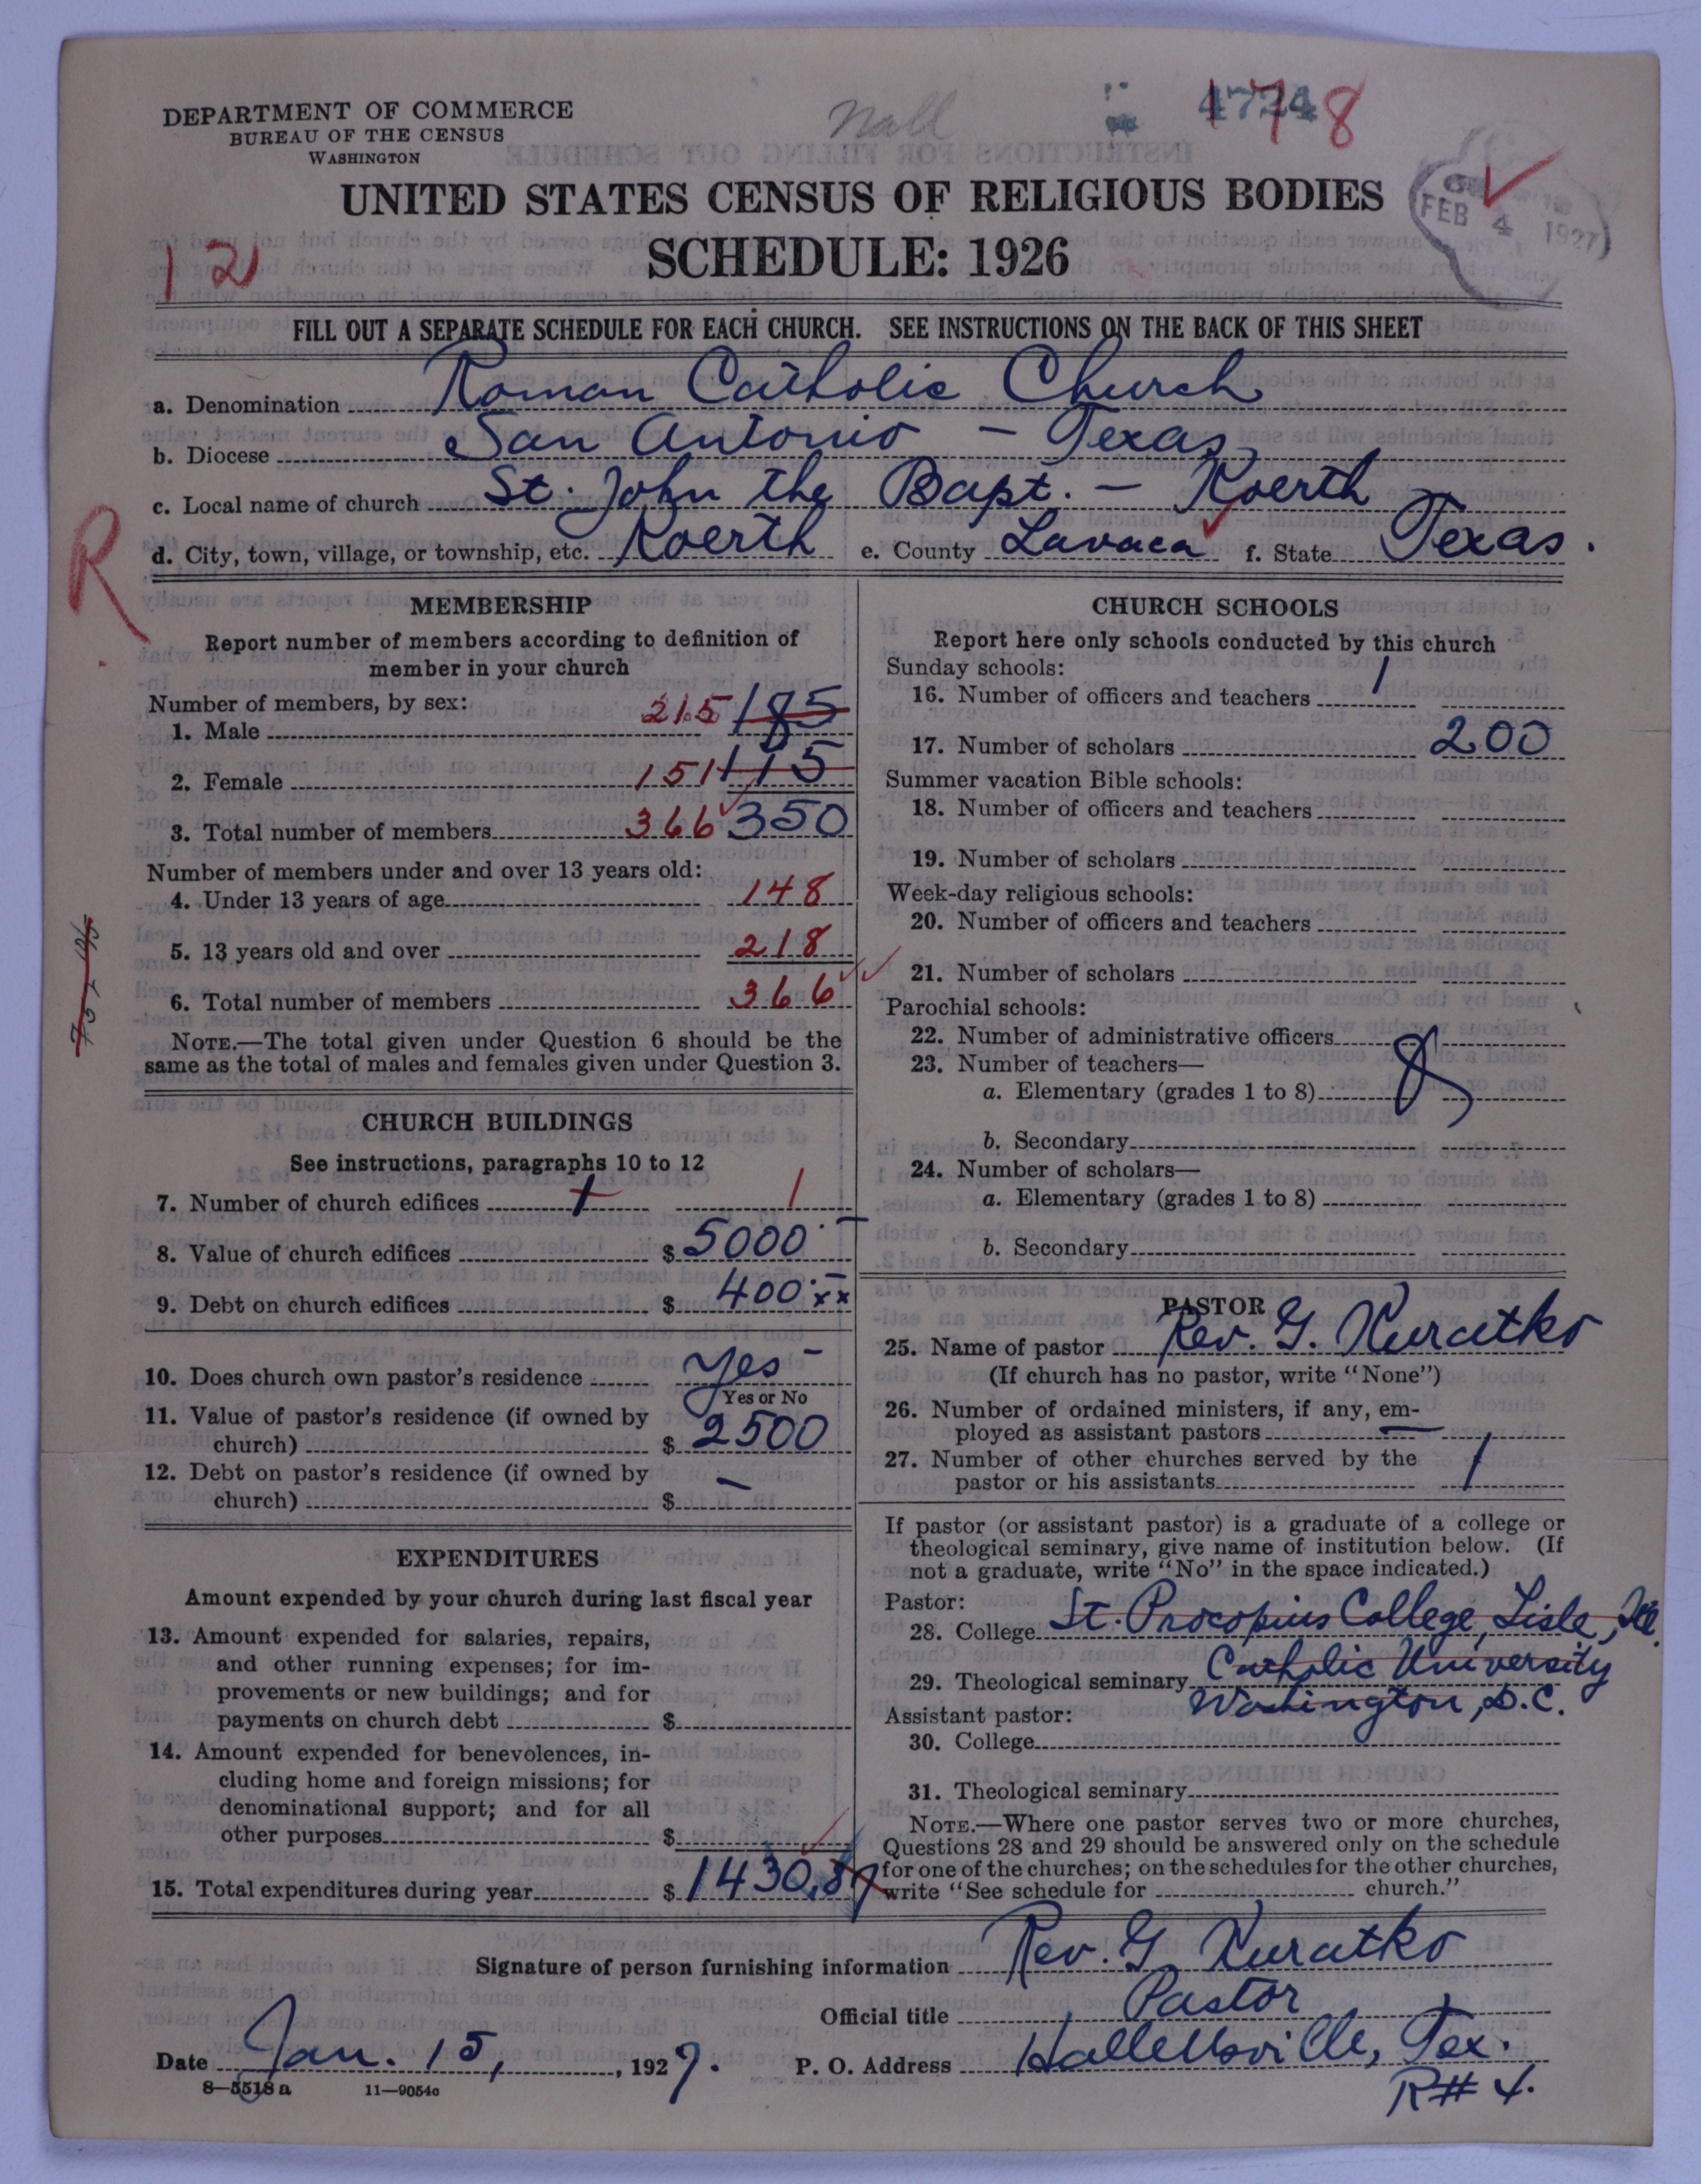 DEPARTMENT OF COMMERCE
BUREAU OF THE CENSUS
WASHINGTON
1778
FEB 4 1927
UNITED STATES CENSUS OF RELIGIOUS BODIES
SCHEDULE: 1926
12
FILL OUT A SEPARATE SCHEDULE FOR EACH CHURCH. SEE INSTRUCTIONS ON THE BACK OF THIS SHEET
a. Denomination Roman Catholic Church
b. Diocese San Antonio - Texas
c. Local name of church St. John the Bapt. - Koerth
d. City, town, village, or township, etc. Koerth e. County Lavaca f. State Texas.
R
MEMBERSHIP
Report number of members according to definition of
member in your church
Number of members, by sex:
1. Male 215 185
2. Female 151 115
3. Total number of members 366 350
Number of members under and over 13 years old:
4. Under 13 years of age 148
5. 13 years old and over 218
6. Total number of members 366
NOTE.—The total given under Question 6 should be the
same as the total of males and females given under Question 3.
CHURCH BUILDINGS
See instructions, paragraphs 10 to 12
7. Number of church edifices 1 1
8. Value of church edifices $ 5000.-
9. Debt on church edifices $ 400.xx
10. Does church own pastor's residence Yes -
Yes or No
11. Value of pastor's residence (if owned by
church) $ 2500
12. Debt on pastor's residence (if owned by
church) $ -
EXPENDITURES
Amount expended by your church during last fiscal year
13. Amount expended for salaries, repairs,
and other running expenses; for im-
provements or new buildings; and for
payments on church debt $
14. Amount expended for benevolences, in-
cluding home and foreign missions; for
denominational support; and for all
other purposes $
15. Total expenditures during year $ 1430.87
CHURCH SCHOOLS
Report here only schools conducted by this church
Sunday schools:
16. Number of officers and teachers 1
17. Number of scholars 200
Summer vacation Bible schools:
18. Number of officers and teachers
19. Number of scholars
Week-day religious schools:
20. Number of officers and teachers
21. Number of scholars
Parochial schools:
22. Number of administrative officers
23. Number of teachers—
a. Elementary (grades 1 to 8)
b. Secondary
24. Number of scholars—
a. Elementary (grades 1 to 8)
b. Secondary
PASTOR
25. Name of pastor Rev. G. Kuratko
(If church has no pastor, write "None")
26. Number of ordained ministers, if any, em-
ployed as assistant pastors —
27. Number of other churches served by the
pastor or his assistants 1
If pastor (or assistant pastor) is a graduate of a college or
theological seminary, give name of institution below. (If
not a graduate, write "No" in the space indicated.)
Pastor:
28. College St. Procopius College, Lisle, Ill.
29. Theological seminary Catholic University
Washington, D.C.
Assistant pastor:
30. College
31. Theological seminary
NOTE.—Where one pastor serves two or more churches,
Questions 28 and 29 should be answered only on the schedule
for one of the churches; on the schedules for the other churches,
write "See schedule for church."
Signature of person furnishing information Rev. G. Kuratko
Official title Pastor
Date Jan. 15, 1927. P. O. Address Hallettsville, Tex.
R#4.
8—5518 a 11—9054c